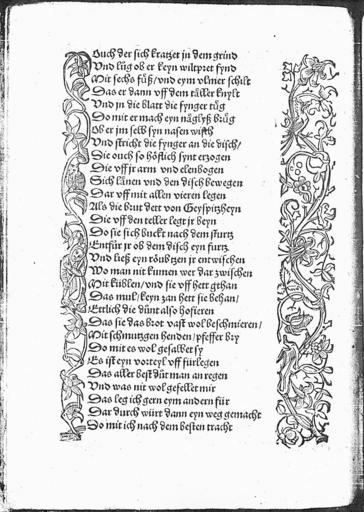 Auch der sich kratzet jn dem grind
Vnd lůg ob er keyn wiltpret fynd
Mit sechs füß/vnd eym vlmer schilt
Das er dann vff dem täller knylt
Vnd jn die blatt die fynger tüg
Do mit er mach eyn näglyß brüg
Ob er jm selb syn nasen wisch
Vnd stricht die fynger an die disch/
Die ouch so höflich synt erzogen
Die vff jr arm vnd elenbogen
Sich länen vnd den disch bewegen
Dar vff mit allen vieren legen
Als die brut dett von Geyspitzheyn
Die vff den teller legt jr beyn
Do sie sich buckt nach dem sturtz
Entfür jr ob dem disch eyn furtz
Vnd ließ eyn röubtzen jr entwischen
Wo man nit kumen wer dar zwischen
Mit küblen/vnd sie vff hett gthan
Das mul/keyn zan hett sie behan/
Ettlich die dünt also hofieren
Das sie das brot vast wol beschmieren/
Mit schmutzgen henden/pfeffer bry
Do mit es wol gesalbet sy
Es ist eyn vorteyl vff fürlegen
Das aller best důt man an regen
Vnd was nit wol gefellet mir
Das leg ich gern eym andern für
Dar durch würt dann eyn weg gemacht
Do mit ich nach dem besten tracht